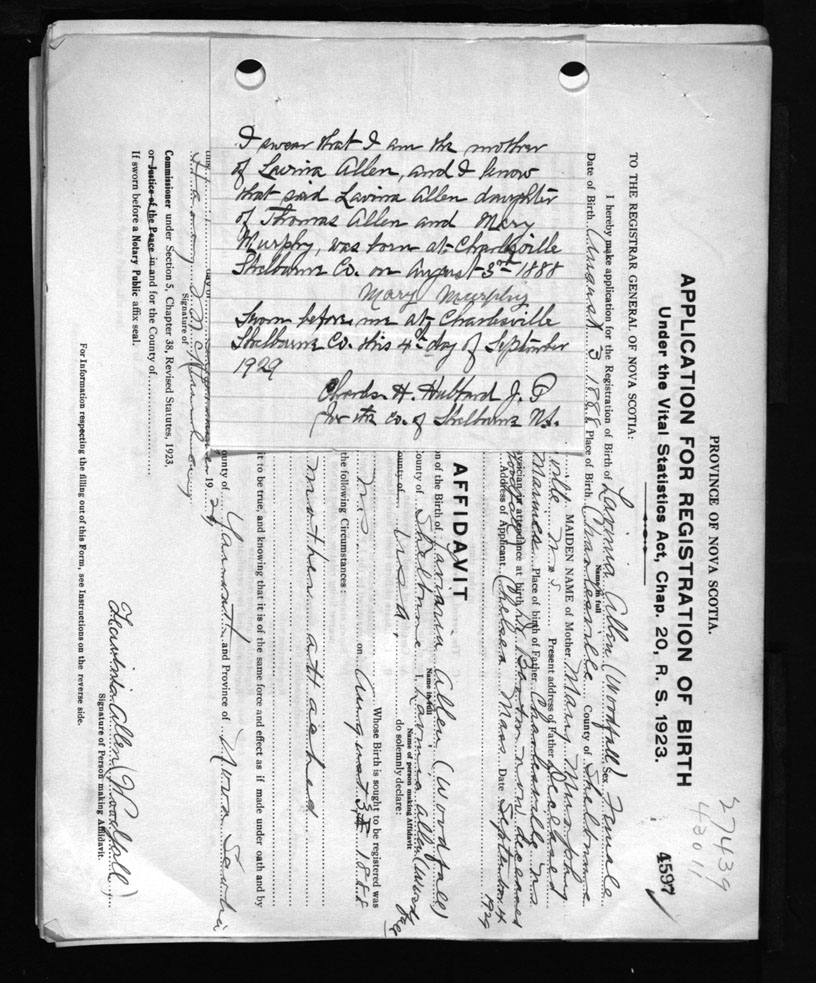 I swear that I am the mother
of Lavina Allen, and I know
that said Lavina Allen daughter
of Thomas Allen and Mary
Murphy, was born at Charlesville
Shelburne Co. on August 3rd 1888
Mary Murphy
Sworn before me at Charlesville
Shelburne Co. this 4th day of September
1929
Charles H. Hubbard J. P
for the Co. of Shelburne N.S.
27439
43011
4597
PROVINCE OF NOVA SCOTIA.
APPLICATION FOR REGISTRATION OF BIRTH
Under the Vital Statistics Act, Chap. 20, R. S. 1923.
TO THE REGISTRAR GENERAL OF NOVA SCOTIA:
I hereby make application for the Registration of Birth of Lavinia Allen (Woodfall) Sex Female
Name in full
Date of Birth August 3 1888 Place of Birth Charlesville County of Shelburne
MAIDEN NAME of Mother Mary Murphy
ville N S Present address of Father Deceased
Place of birth of Father Charlesville NS
ysician in attendance at birth Dr now deceased
Address of Applicant Chelsea Mass Date September 4 1929
AFFIDAVIT
n of the Birth of Allen (Woodfall)
Name in full
ounty of Shelburne I, Lavinia Allen
Name of person making Affidavit
ounty of U S A. do solemnly declare:
Whose Birth is sought to be registered was
N S on August 3 1888
the following Circumstances:
Mother attached
it to be true, and knowing that it is of the same force and effect as if made under oath and by
ounty of Yarmouth and Province of Nova Scotia
day of 1929
Signature of
Commissioner under Section 5, Chapter 38, Revised Statutes, 1923,
or Justice of the Peace in and for the County of
If sworn before a Notary Public affix seal.
Allen (Woodfall)
Signature of Person making Affidavit.
For Information respecting the filling out of this Form, see Instructions on the reverse side.